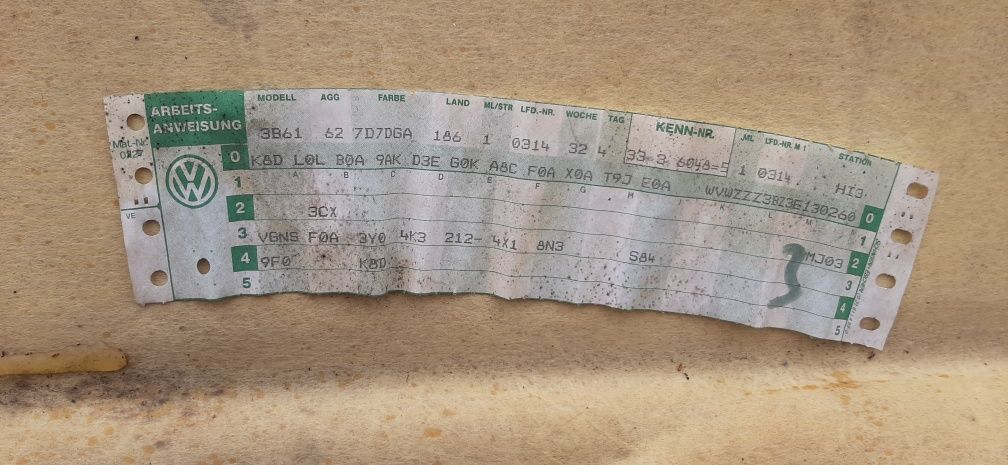 ARBEITS-
ANWEISUNG
MODELL AGG FARBE LAND ML/STR LFD.-NR. WOCHE TAG KENN-NR. ML LFD.-NR. M 1 STATION
3B61 62 7D7DGA 186 1 0314 32 4 33-3 6048=5 1 0314 HI3
0 K8D L0L B0A 9AK D3E G0K A8C F0A X0A T9J E0A WVWZZZ3BZ3E130260 0
A B C D E F G H
1 1
2 3CX MJ03 2
3 VGNS F0A 3Y0 4K3 212- 4X1 8N3 S84 3
4 9F0 K8D 4
5 5
VE
VW